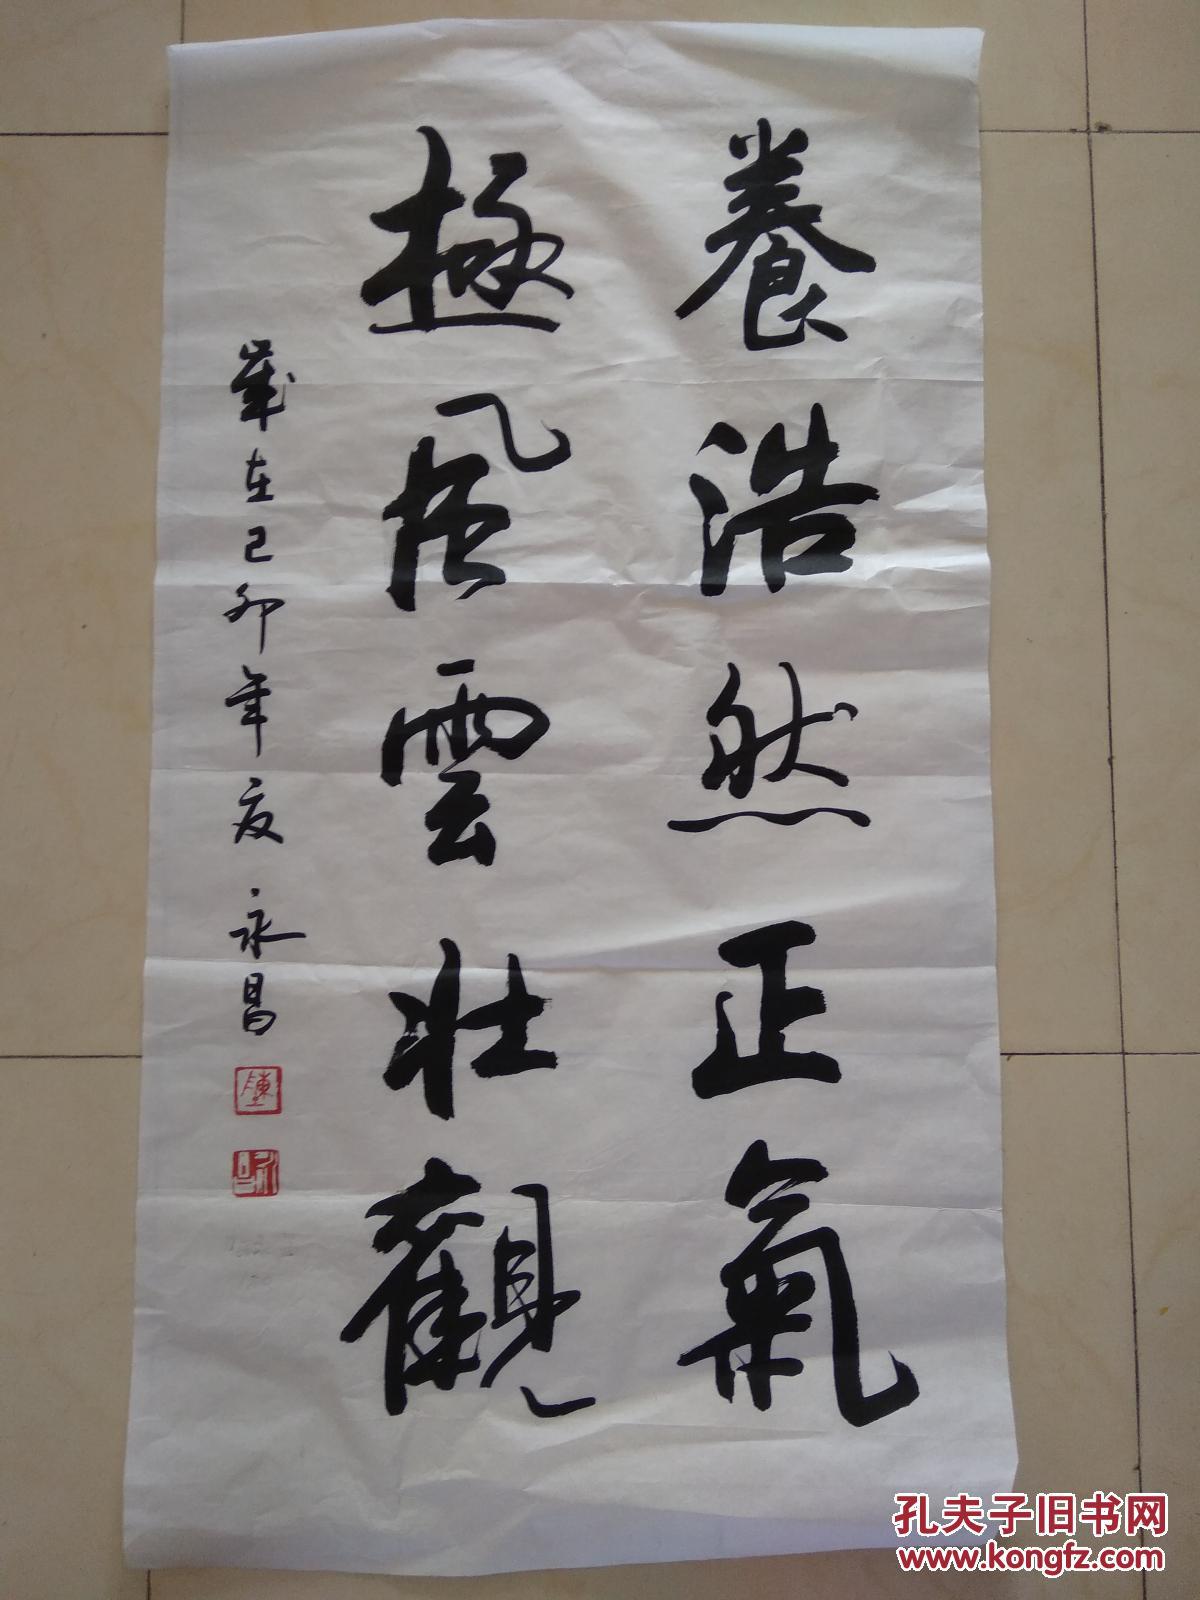 養浩然正氣
極風雲壯觀
歲在己卯年夏永昌
陳
永昌
孔夫子旧书网
www.kongfz.com